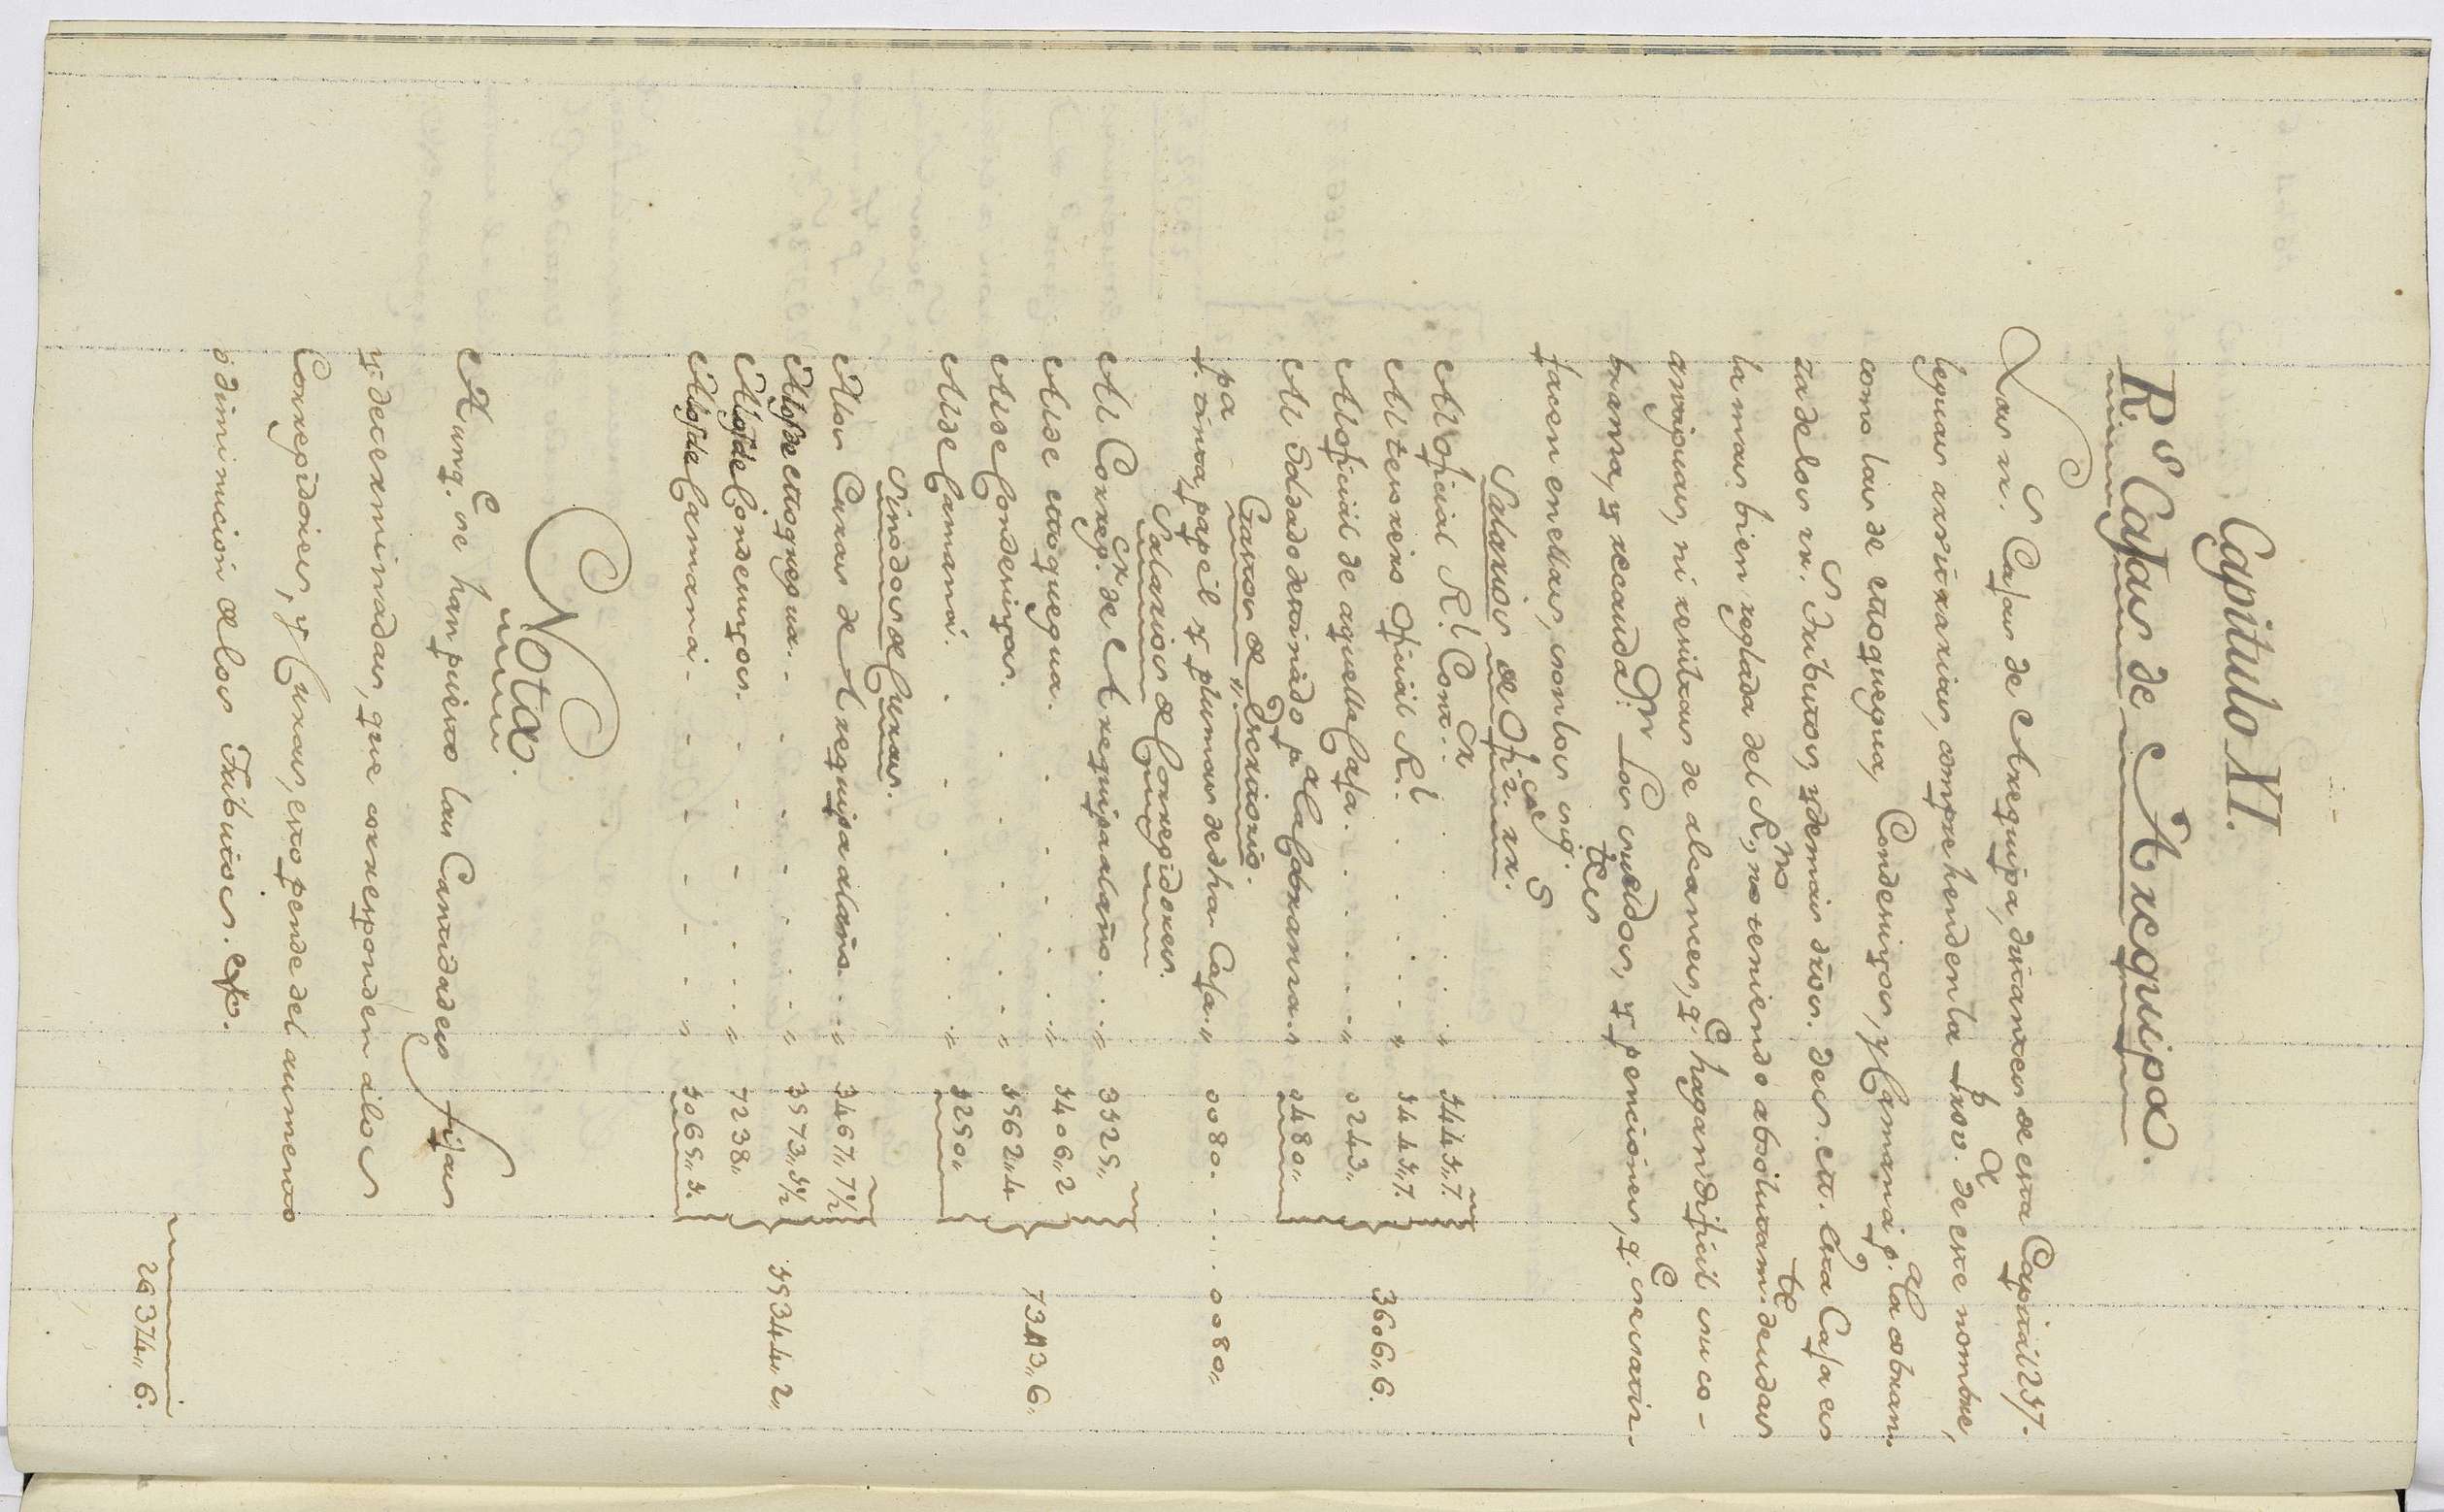 Capitulo XI.
R.s Cajas de Arequipa.
Las rr.s Cajas de Arequipa, distantes de esta Capital 217.
leguas arvitrarias, comprehenden la Prov.a de este nombre,
como las de Moquegua, Condesuyos, y Camaná p.a la cobran-
za de los rr.s tributos, y demas dros. de S. M. Esta Caja es
la mas bien reglada del R.no, no teniendo absolutam.te deudas
antiguas, ni resultas de alcances, q.e hagan dificil su co-
branza, y recaudac.on Los sueldos, y penciones, q.e se satis-
facen en ellas, son los sig.tes
Salarios de Ofiz.s rr.s
Al Oficial R.l Cont.or . . . . . " 1443,, 7.
Al tesorero Oficial R.l . . . . " 1443,, 7. 3606,, 6.
Al oficial de aquella Caja . . . . " 0243,,
Al Soldado destinado p.a la Cobranza .. " 0480,,
Gastos de Escritorio.
P.a tinta, papel y plumas de dha Caja .. " 0080. . . . . 0080,,
Salarios de Corregidores.
Al Correg.or de Arequipa al año . . . " 3125,,
Al de Moquegua . . . . . " 1406,, 2
Al de Condesuyos . . . . . " 1562,, 4 7343,, 6,,
Al de Camaná . . . . . " 1250,,
Sinodos de Curas.
A los Curas de Arequipa al año . . . " 3467,, 7 1/2
A los de Moquegua . . . . . " 3573,, 1 1/2
A los de Condesuyos . . . . . " 7238,, 15344,, 2,,
A los de Camaná . . . . . " 1065,, 1.
Nota.
Aunq.e se han puesto las Cantidades fijas
y determinadas, que corresponden á los
Corregidores, y Curas, esto pende del aumento
ó diminucion de los Tributos.
26374,, 6.